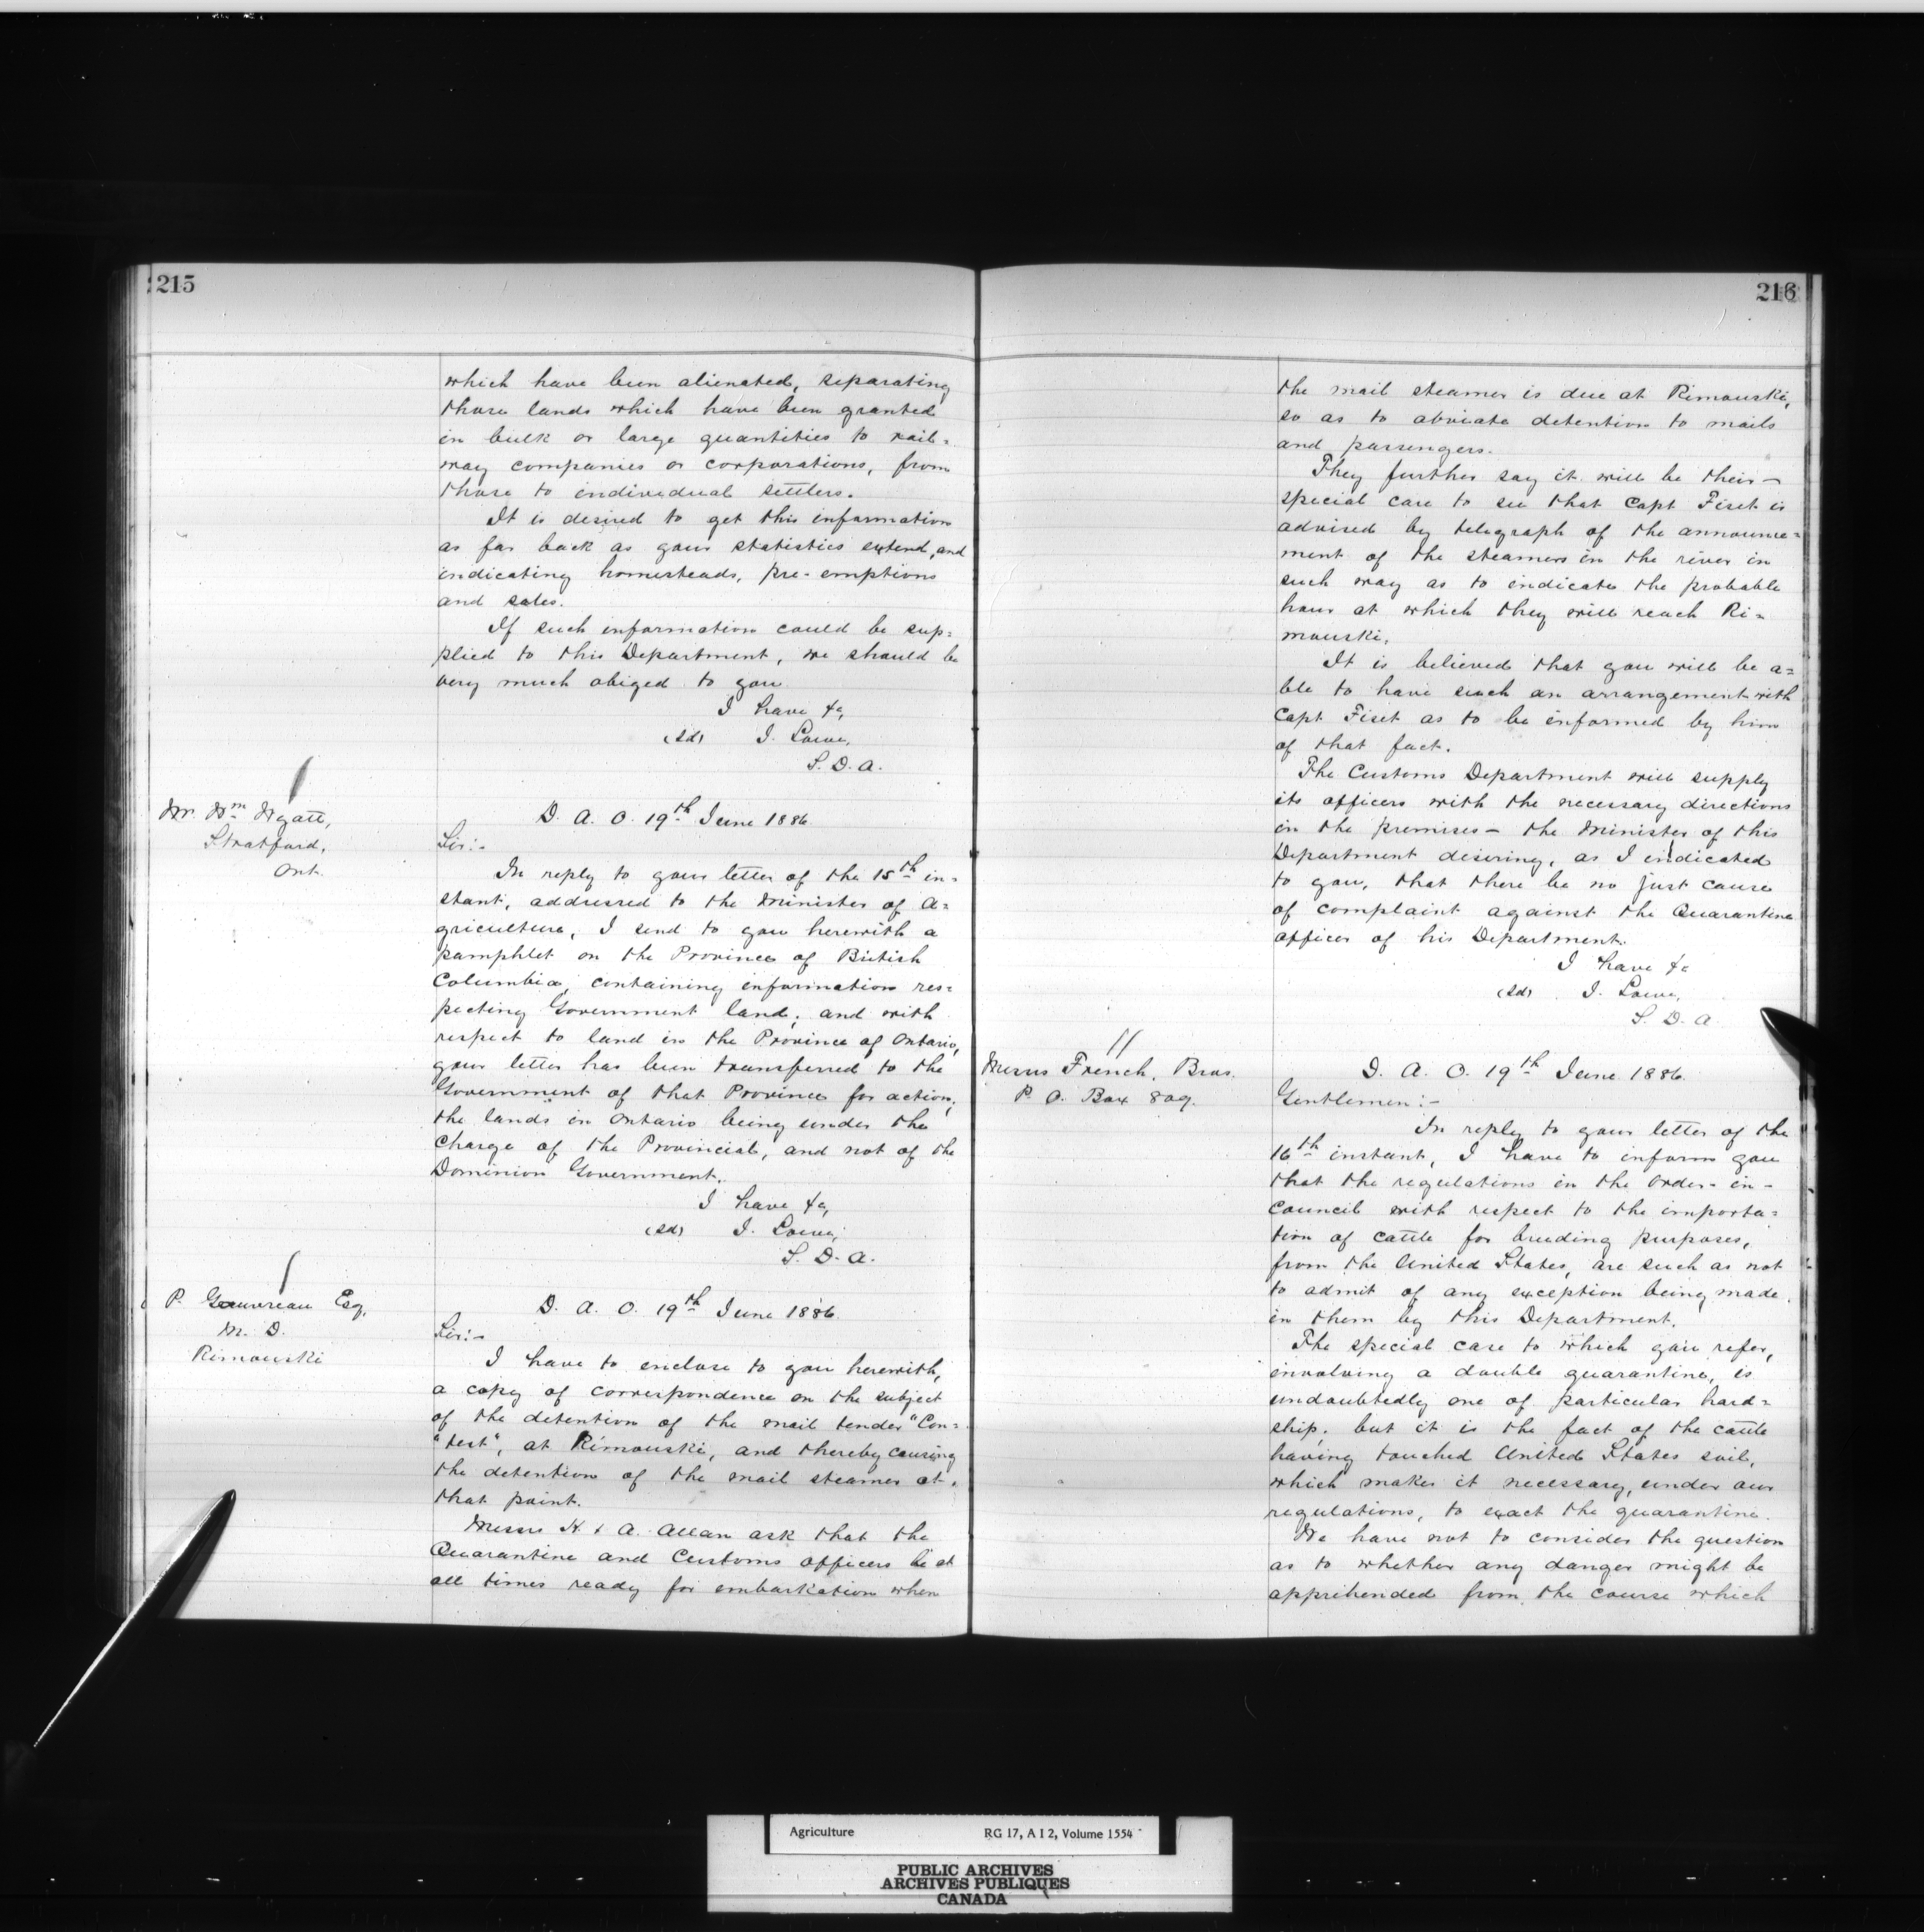 215
which have been alienated, separating
those lands which have been granted
in bulk or large quantities to rail=
way companies or corporations, from
those to individual settlers.
It is desired to get this information
as far back as your statistics extend, and
indicating homesteads, pre-emptions
and sales.
If such information could be sup=
plied to this Department, we should be
very much obiged to you
I have &c,
(sd) J. Lowe,
S. D. A.
Mr. Wm Wyatt,
Stratford,
Ont.
D. A. O. 19th June 1886
Sir:-
In reply to your letter of the 15th in=
stant, addressed to the Minister of A=
griculture, I send to you herewith a
pamphlet on the Province of British
Columbia, containing information res=
pecting Government land; and with
respect to land in the Province of Ontario,
your letter has been transferred to the
Government of that Province for action,
the lands in Ontario being under the
Charge of the Provincial, and not of the
Dominion Government.
I have &c,
(sd) J. Lowe,
S. D. A.
P. Gauvreau Esq,
M. D.
Rimouski
D. A. O. 19th June 1886.
Sir:-
I have to enclose to you herewith,
a copy of correspondence on the subject
of the detention of the mail tender "Con=
"test", at Rimouski, and thereby causing
the detention of the mail steamer at
that point.
Messrs H. & A. Allan ask that the
Quarantine and Customs officers be at
all times ready for embarkation when
216
the mail steamer is due at Rimouski,
so as to obviate detention to mails
and passengers.
They further say it will be their-
special care to see that Capt Fiset is
advised by telegraph of the announce=
ment of the steamers in the river in
such way as to indicate the probable
hour at which they will reach Ri=
mouski.
It is believed that you will be a=
ble to have such an arrangement with
Capt Fiset as to be informed by him
of that fact.
The Customs Department will supply
its officers with the necessary directions
in the premises - the Minister of this
Department desiring, as I indicated
to you, that there be no just cause
of complaint against the Quarantine
officer of his Department.
I have &c
(sd) J. Lowe,
S. D. A.
Messrs French, Bros.
P. O. Box 809.
D. A. O. 19th June 1886.
Gentlemen:-
In reply to your letter of the
16th instant, I have to inform you
that the regulations in the Order-in-
Council with respect to the importa=
tion of cattle for breeding purposes,
from the United States, are such as not
to admit of any exception being made
in them by this Department.
The special case to which you refer,
involving a double quarantine, is
undoubtedly one of particular hard=
ship, but it is the fact of the cattle
having touched United States soil,
which makes it necessary, under our
regulations, to exact the quarantine.
We have not to consider the question
as to whether any danger might be
apprehended from the course which
Agriculture RG 17, A I 2, Volume 1554
PUBLIC ARCHIVES
ARCHIVES PUBLIQUES
CANADA